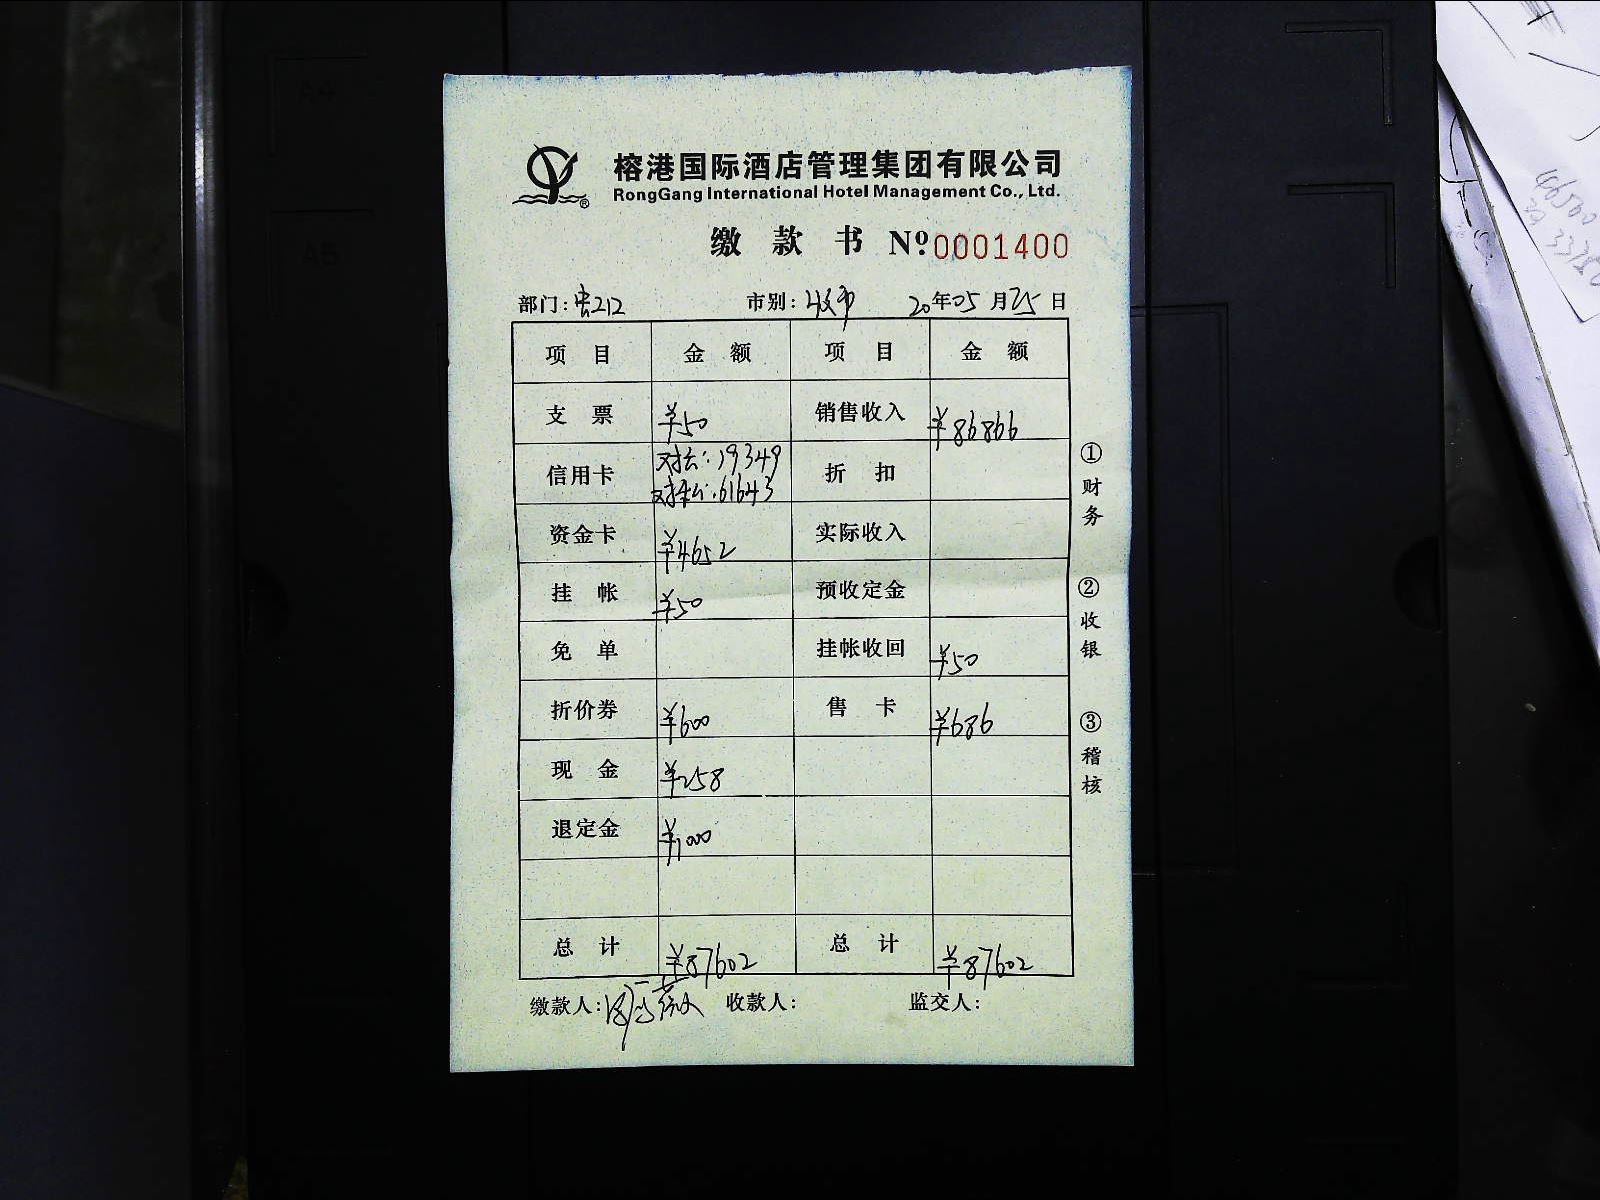 榕港国际酒店管理集团有限公司
RongGang International Hotel Management Co., Ltd.
缴 款 书 Nº 0001400
部门: 212 市别: 夜市 20年05月25日
项 目 金 额 项 目 金 额
支 票 ¥50 销售收入 ¥86866
信用卡 对公:19349 折 扣
对私:61643
资金卡 ¥4652 实际收入
挂 帐 ¥50 预收定金
免 单 挂帐收回 ¥50
折价券 ¥600 售 卡 ¥686
现 金 ¥258
退定金 ¥1000
总 计 ¥87602 总 计 ¥87602
缴款人: 收款人: 监交人:
①财务
②收银
③稽核
A4
A5
46500